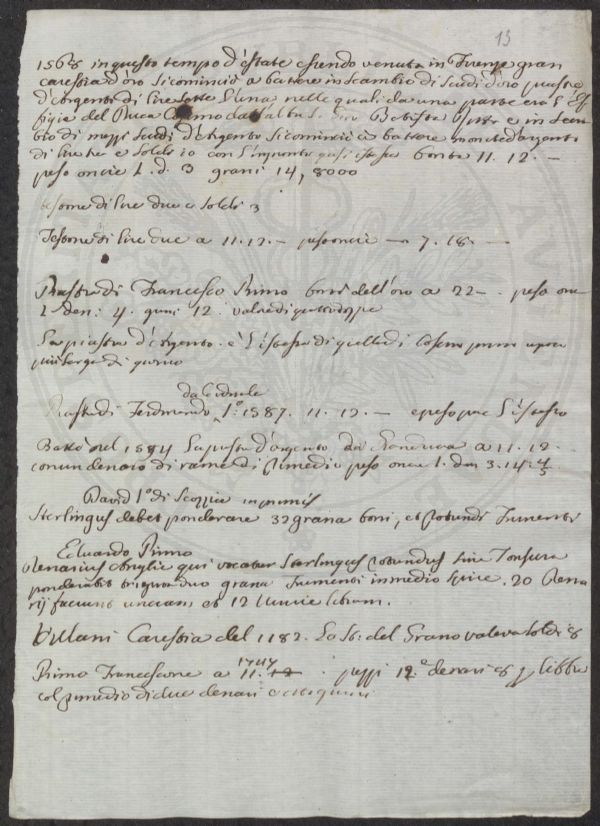 13
1568 in questo tempo d'estate essendo venuta in Firenze gran
carestia d'oro si cominciò a battere in scambio di scudi d'oro piastre
d'Argento di lire sette l'una nelle quali da una parte era l'Ef
figie del Duca Cosimo Battista e in scam
bio di mezzi scudi d'Argento si cominciò a battere monete d'argento
di lire tre e soldi 10 con l'impronta bontà 11. 12. —
peso oncie 1. d. 3 grani 14, 8000
testone di lire due e soldi 3
Testone di lire due a 11. 12. — peso oncie — 7. 18. —
Piastra di Francesco Primo bontà dell'oro a 22 — peso onc
1 den. 4. grani 12. vale di
La piastra d'Argento è l'istessa di quelle di Cosimo primo
più larga di
da Cardinale
Piastre di Ferdinando 1.º 1587. 11. 12. — e peso l'istesso
Battè nel 1594 la piastra d'argento da a 11. 12.
con un denaro di rame di rimedio peso oncie 1. den 3. 14. 4/5
David 1.º di Scozzia
Sterlingus debet ponderare 32 grana boni, et rotundi frumenti
Eduardo Primo
Denarius Anglie qui vocatur Sterlingus rotundus sine tonsura
ponderabit triginta duo grana frumenti in medio spice. 20 Dena
rij faciunt unciam et 12 Uncie libram.
Villani Carestia del 1182. Lo St. del Grano valeva soldi 8
1747
Primo Francescone a 11. 12. pezzi 12. e denari 8 libbra
col rimedio di due denari